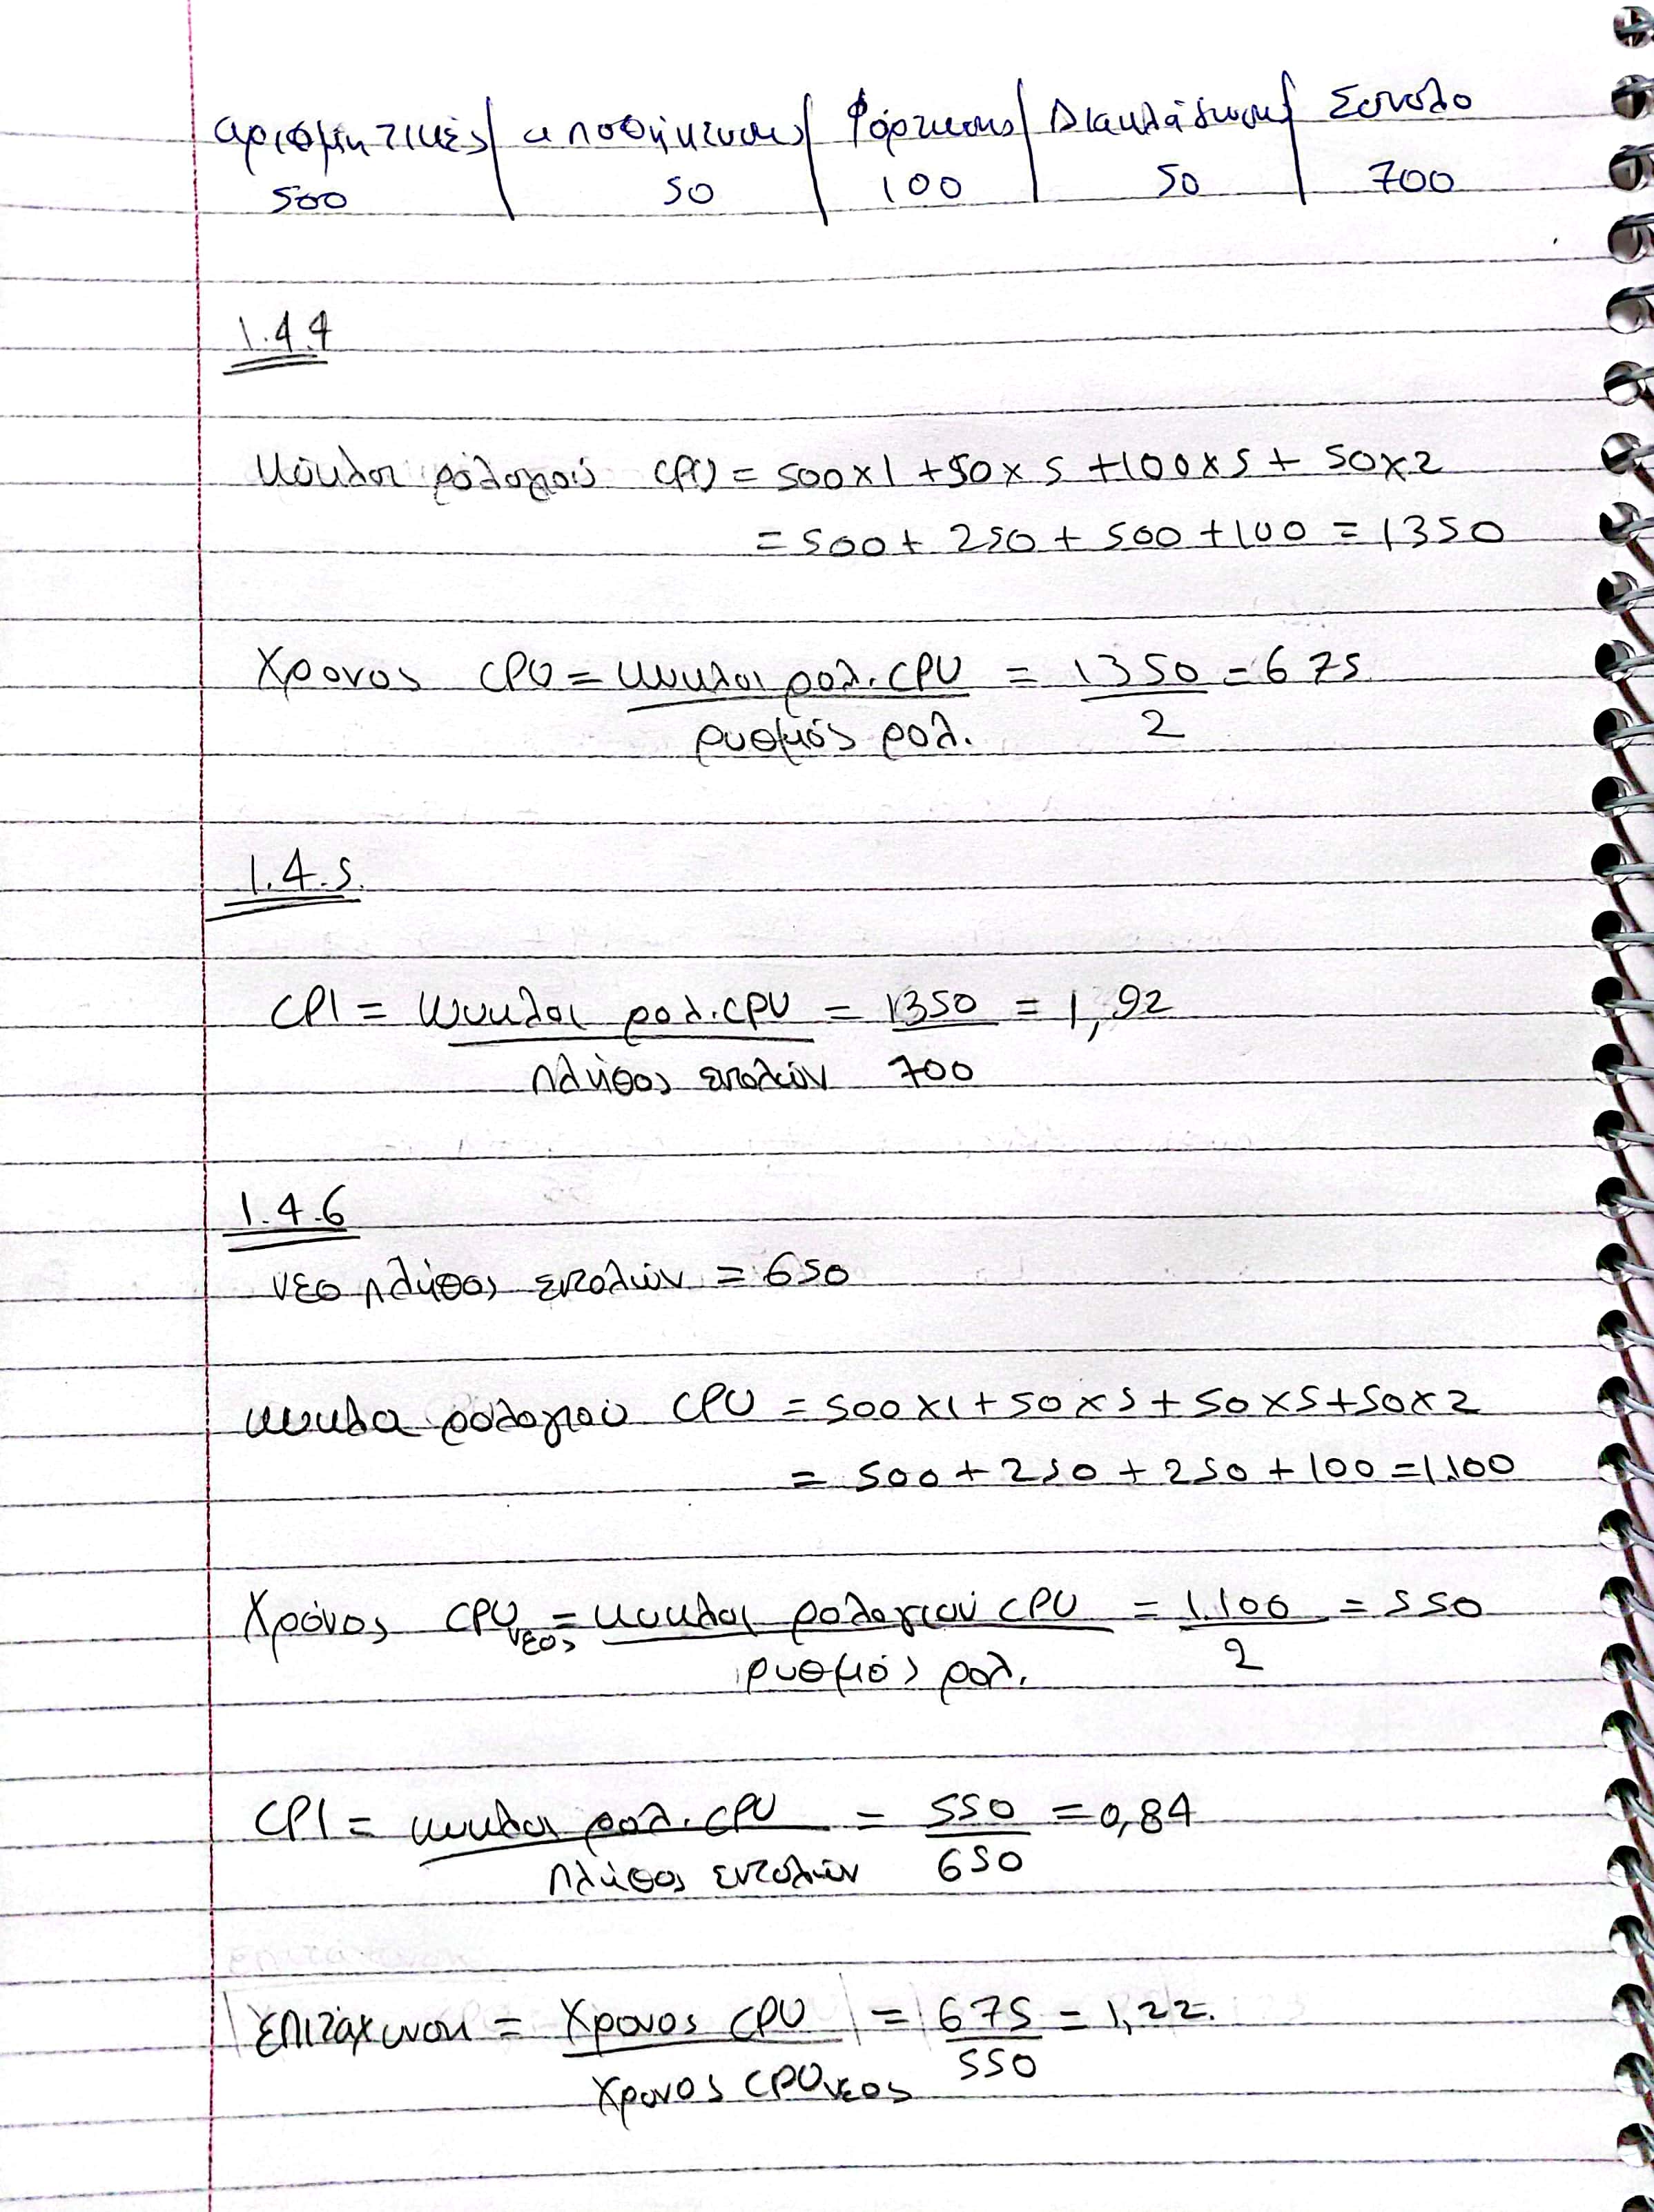 αριθμητικές | αποθήκευσης | Φόρτωσης | Διακλάδωσης | Συνολο
500 | 50 | 100 | 50 | 700
1.4.4
Κύκλοι ρολογιού CPU = 500x1 + 50x5 + 100x5 + 50x2
= 500 + 250 + 500 + 100 = 1350
Χρονος CPU = κυκλοι ρολ. CPU / ρυθμός ρολ. = 1350 / 2 = 675
1.4.5.
CPI = κυκλοι ρολ. CPU / πλήθος εντολών = 1350 / 700 = 1,92
1.4.6
νεο πλήθος εντολών = 650
κυκλα ρολογιού CPU = 500x1 + 50x5 + 50x5 + 50x2
= 500 + 250 + 250 + 100 = 1.100
Χρόνος CPU νεος = κυκλοι ρολογιού CPU / ρυθμός ρολ. = 1.100 / 2 = 550
CPI = κυκλοι ρολ. CPU / πλήθος εντολών = 550 / 650 = 0,84
Επιτάχυνση = Χρονος CPU / Χρονος CPU νεος = 675 / 550 = 1,22.